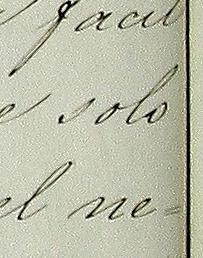 facil
e solo
el ne=